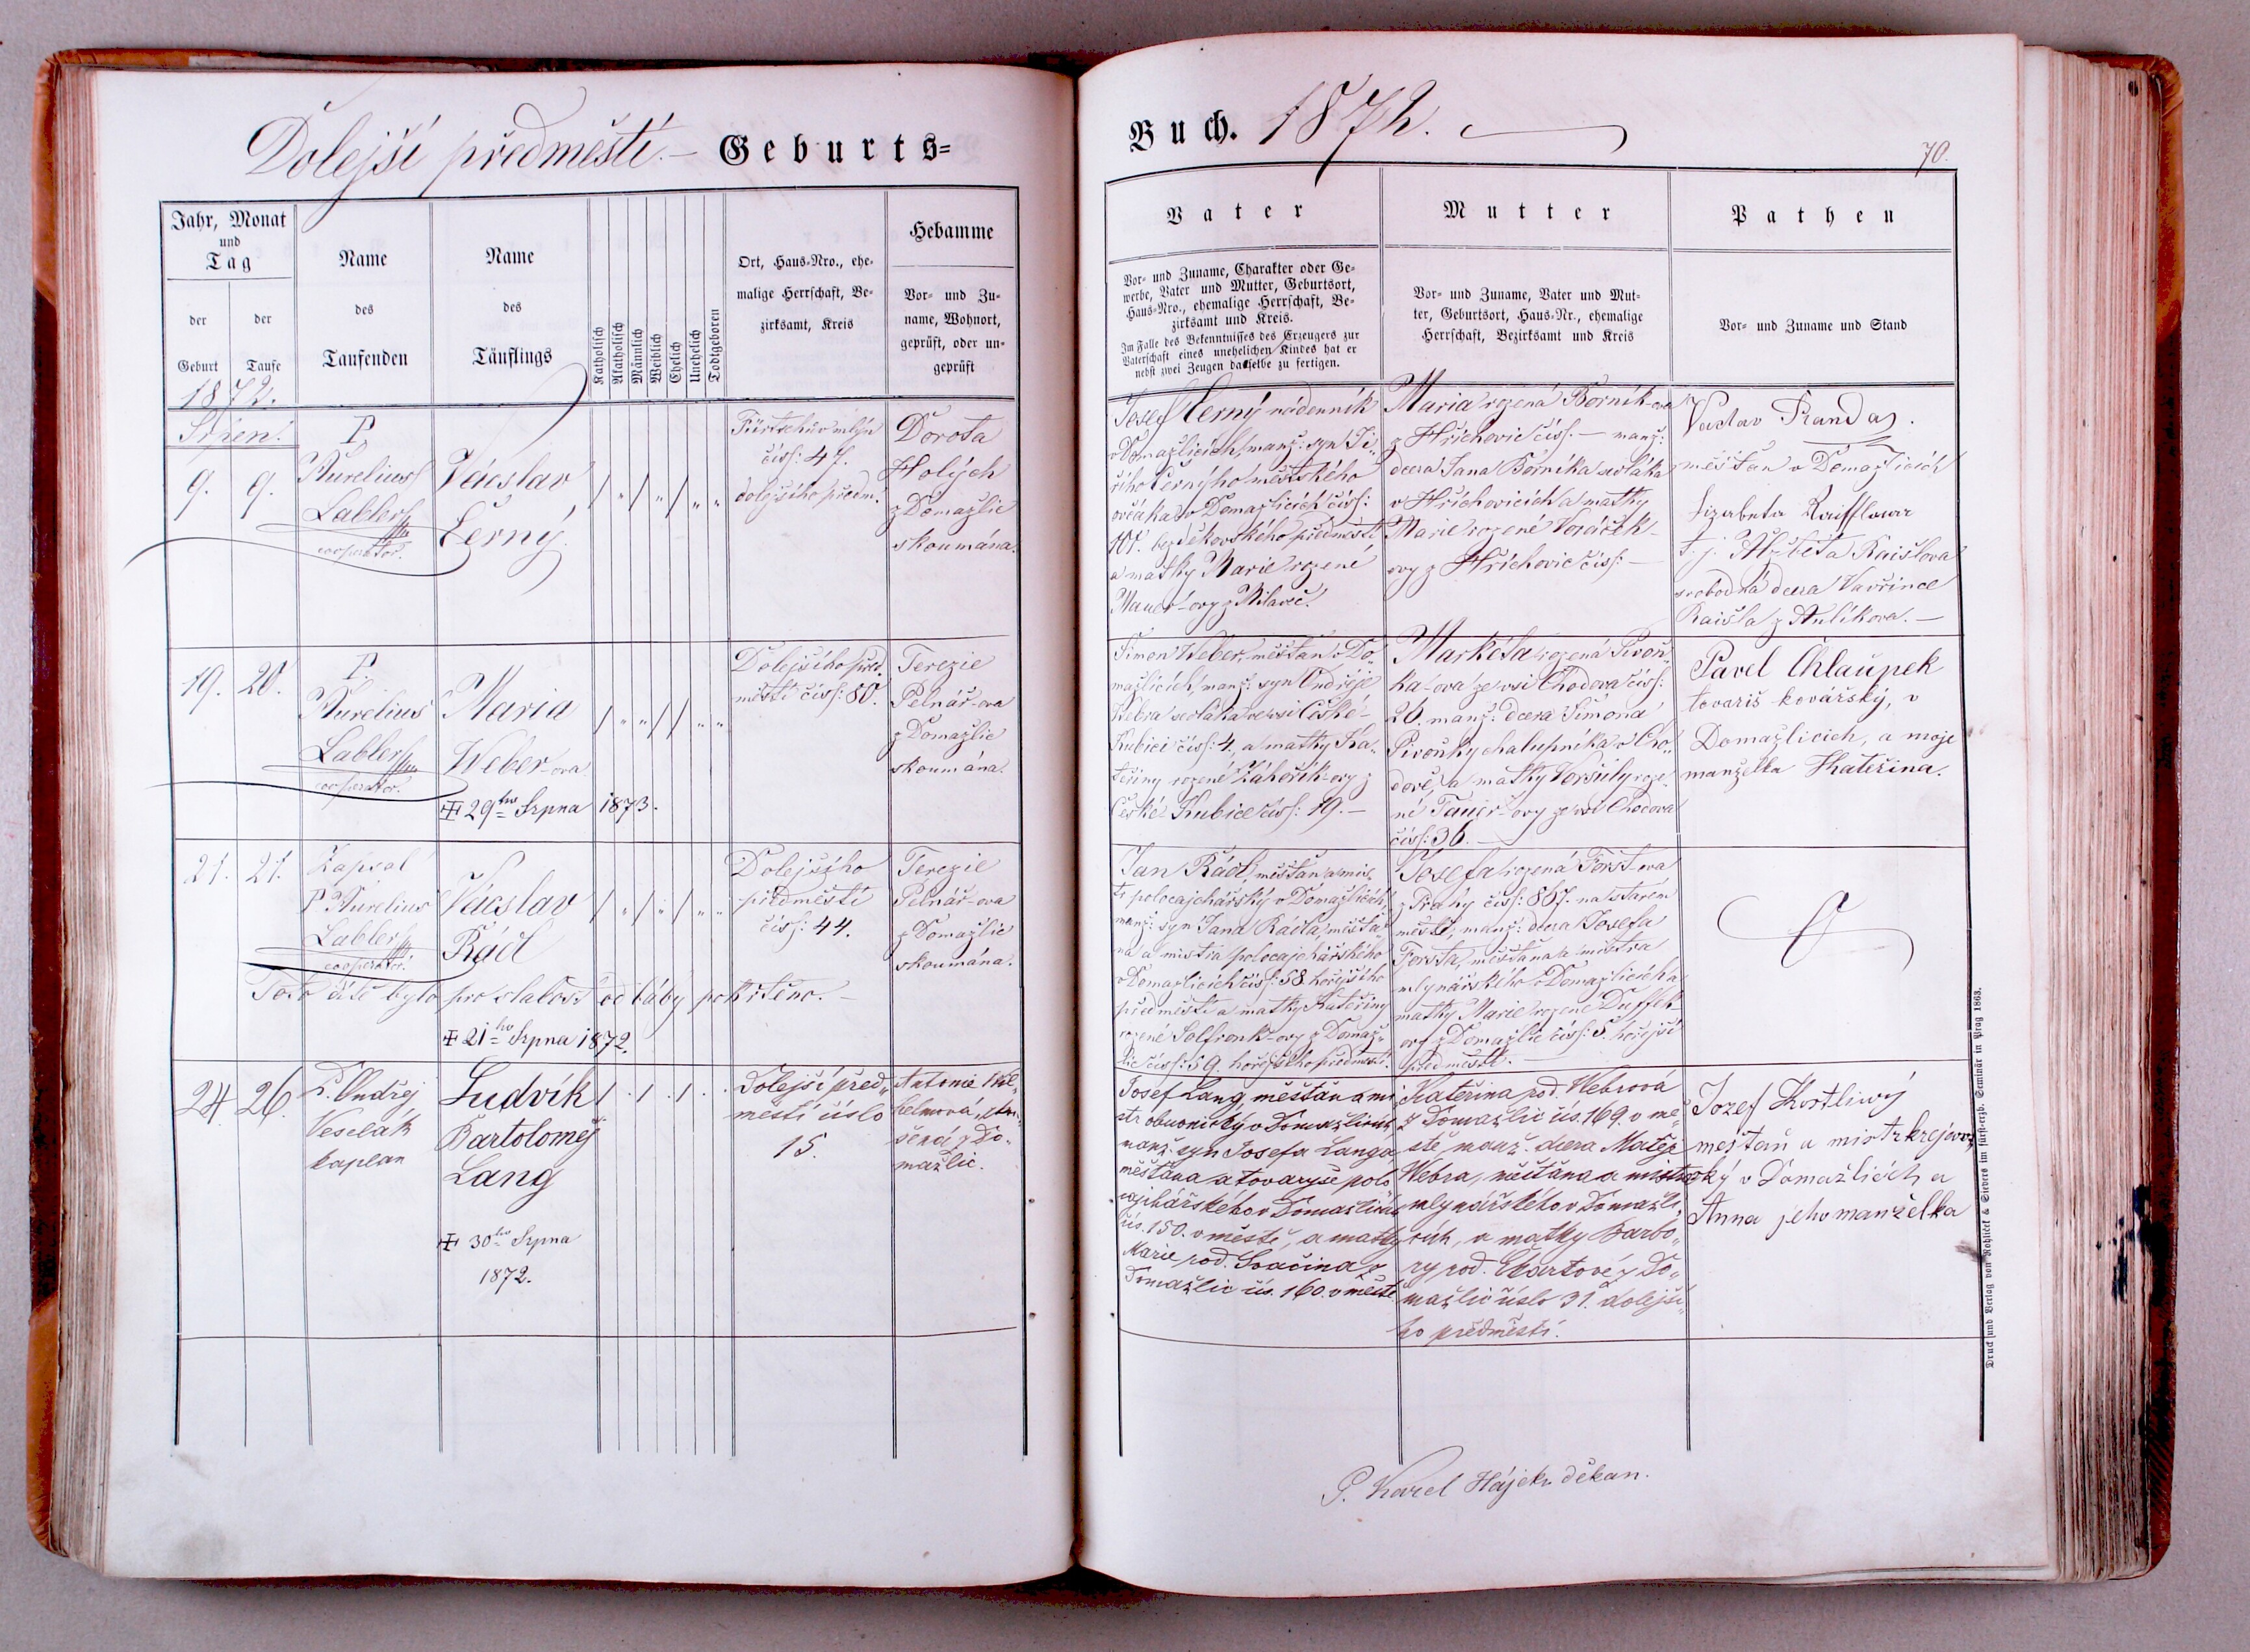 Dolejší předměstí. – Geburts=
Jahr, Monat
und
Tag
der
Geburt
der
Taufe
Name
des
Taufenden
Name
des
Täuflings
Katholisch
Akatholisch
Männlich
Weiblich
Ehelich
Unehelich
Todtgeboren
Ort, Haus-Nro., ehe-
malige Herrschaft, Be-
zirksamt, Kreis
Hebamme
Vor- und Zu-
name, Wohnort,
geprüft, oder un-
geprüft
1872.
Srpen.
9. 9.
P.
Aurelius
Labler
cooperator.
Vácslav
Černý.
mlýn
čís: 47.
dolejšího předm.
Dorota
Holých
z Domažlic
zkoumána.
19. 20.
P.
Aurelius
Labler
cooperator.
Maria
Weber-ova
✠ 29ho Srpna 1873.
Dolejšího před-
městí čís: 80.
Terezie
Pelnář-ova
z Domažlic
zkoumána.
21. 21.
Zapsal
P. Aurelius
Labler
cooperator.
Vácslav
Rádl
Dolejšího
předměstí
čís: 44.
Terezie
Pelnář-ova
z Domažlic
zkoumána.
Toto dítě bylo pro slabost od báby pokřtěno. –
✠ 21ho Srpna 1872.
24. 26.
P. Ondřej
Veselák
kaplan
Ludvík
Bartoloměj
Lang
✠ 30ho Srpna
1872.
Dolejší před„
městí číslo
15.
Antonie
z Do-
mažlic.
Buch. 1872.
70.
Vater
Vor- und Zuname, Charakter oder Ge-
werbe, Vater und Mutter, Geburtsort,
Haus-Nro., ehemalige Herrschaft, Be-
zirksamt und Kreis.
Im Falle des Bekenntnisses des Erzeugers zur
Vaterschaft eines unehelichen Kindes hat er
nebst zwei Zeugen dasselbe zu fertigen.
Mutter
Vor- und Zuname, Vater und Mut-
ter, Geburtsort, Haus-Nr., ehemalige
Herrschaft, Bezirksamt und Kreis
Pathen
Vor- und Zuname und Stand
Josef Černý nádenník
v Domažlicích, manž: syn Ji-
řího Černýho městského
ovčáka v Domažlicích čís:
101. bezděkovského předměstí
a matky Marie rozené
Mauer-ovy z Milavč.
Maria rozená Borník-ova
z Hřichovic čís: – manž:
dcera Jana Borníka sedláka
v Hřichovicích a matky
Marie rozené Voráček-
ovy z Hřichovic čís: –
Vaclav Pranda
měšťan v Domažlicích
t. j. Alžběta Raišlova
svobodná dcera Vavřince
Raišla z –
Šimon Weber, měšťan v Do-
mažlicích, manž: syn Ondřeje
Webra sedláka ve vsi České-
Kubici čís: 4, a matky Ka-
teřiny rozené Záhořík-ovy z
České Kubice čís: 19. –
Markéta rozená Pivoň-
ka-ova ze vsi Chodova čís:
26. manž: dcera Šimona
Pivoňky chalupníka v Cho-
dově, a matky Voršily roze-
né Tauer-ovy ze vsi Chodova
čís: 36. –
Pavel Chlaupek
tovariš kovářský, v
Domažlicich, a moje
manželka Kateřina.
Jan Rádl, měšťan a mis-
tr polocajchářský v Domažlicích,
manž: syn Jana Rádla, měšťa-
na a mistra polocajchářského
v Domažlicích čís: 58 hořejšího
předměstí a matky Kateřiny
rozené Solfronk-ovy z Domaž-
lic čís: 59. hořejšího předměstí.
Josefa rozená Forst-ova
z Prahy čís: 867. na starém
městě, manž: dcera Josefa
Forsta, měšťana a mistra
mlynářského v Domažlicích a
matky Marie rozené Duffek-
ovy z Domažlic čís: 5. hořejší
předměstí. –
Josef Lang, měšťan a mi-
str obuvnický v Domažlicích,
manž. syn Josefa Langa,
měšťana a tovaryše polo
cajchářského v Domažlicích
čís. 150. v městě, a matky
Marie rod. Svačina z
Domažlic čís. 160. v městě
Kateřina rod. Webrová
z Domažlic čís. 169. v mě-
stě, manž. dcera Matěje
Webra, měšťana a mistra
mlynářského v Domažli-
cích, a matky Barbo„
ry rod. Ekartové z Do„
mažlic číslo 31. dolejší„
ho předměstí.
Jozef Kostliwý
mešťan a mistr krejčov-
ský v Domažlicích a
Anna jeho manželka
P. Karel Hájek děkan.
Druck und Verlag von Rohliček & Sievers im fürst-erzb. Seminär in Prag 1863.